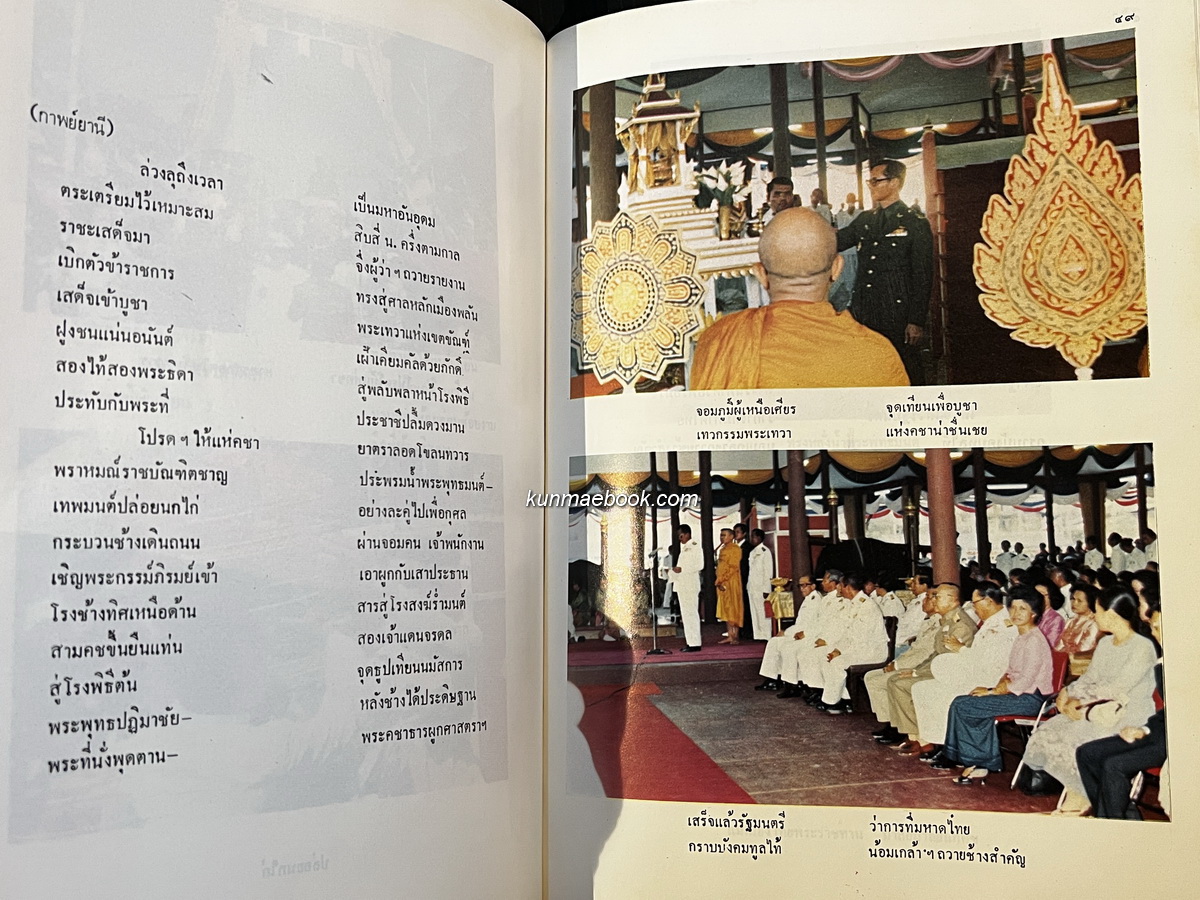 (กาพย์ยานี)
ล่วงลุถึงเวลา เป็นมหาอันอุดม
ตระเตรียมไว้เหมาะสม สิบสี่ น. ครึ่งตามกาล
ราชะเสด็จมา จึ่งผู้ว่า ฯ ถวายรายงาน
เบิกตัวข้าราชการ ทรงสู่ศาลหลักเมืองพลัน
เสด็จเข้าบูชา พระเทวาแห่งเขตขัณฑ์
ฝูงชนแน่นอนันต์ เฝ้าเคียมคัลด้วยภักดิ์
สองไท้สองพระธิดา สู่พลับพลาหน้าโรงพิธี
ประทับกับพระที่ ประชาชีปลื้มดวงมาน
โปรด ฯ ให้แห่คชา ยาตราลอดโขลนทวาร
พราหมณ์ราชบัณฑิตชาญ ประพรมน้ำพระพุทธมนต์–
เทพมนต์ปล่อยนกไก่ อย่างละคู่ไปเพื่อกุศล
กระบวนช้างเดินถนน ผ่านจอมคน เจ้าพนักงาน
เชิญพระกรรม์ภิรมย์เข้า เอาผูกกับเสาประธาน
โรงช้างทิศเหนือด้าน สารสู่โรงสงฆ์ร่ำมนต์
สามคชขึ้นยืนแท่น สองเจ้าแดนจรดล
สู่โรงพิธีต้น จุดธูปเทียนนมัสการ
พระพุทธปฏิมาชัย– หลังช้างได้ประดิษฐาน
พระที่นั่งพุดตาน– พระคชาธารผูกศาสตราฯ
๔๙
จอมภูมิ์ผู้เหนือเศียร จุดเทียนเพื่อบูชา
เทวกรรมพระเทวา แห่งคชาน่าชื่นเชย
kunmaebook.com
เสร็จแล้วรัฐมนตรี ว่าการที่มหาดไทย
กราบบังคมทูลไท้ น้อมเกล้า ฯ ถวายช้างสำคัญ